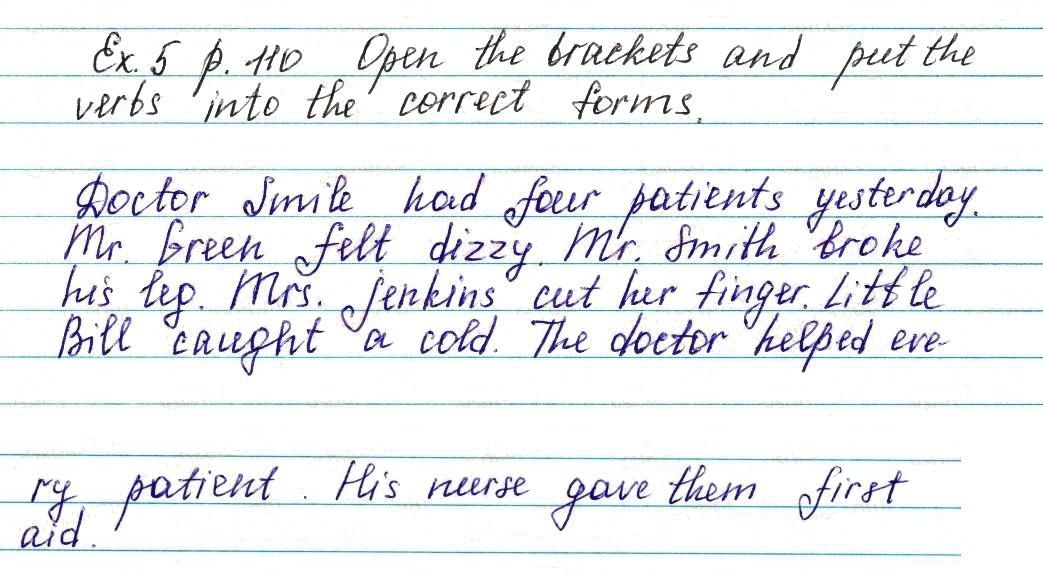 Ex. 5 p. 110 Open the brackets and put the
verbs into the correct forms.
Doctor Smile had four patients yesterday.
Mr. Green felt dizzy. Mr. Smith broke
his leg. Mrs. Jenkins cut her finger. Little
Bill caught a cold. The doctor helped eve-
ry patient. His nurse gave them first
aid.